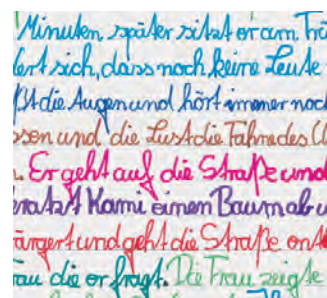 Minuten später sitzt er am
dert sich, dass noch keine Leute
die Augen und hört immer noch
und die Lust die Fahne des
. Er geht auf die Straße und
kratzt Kami einen Baum ab
ärgert und geht die Straße ent
die er fragt. Die Frau zeigte